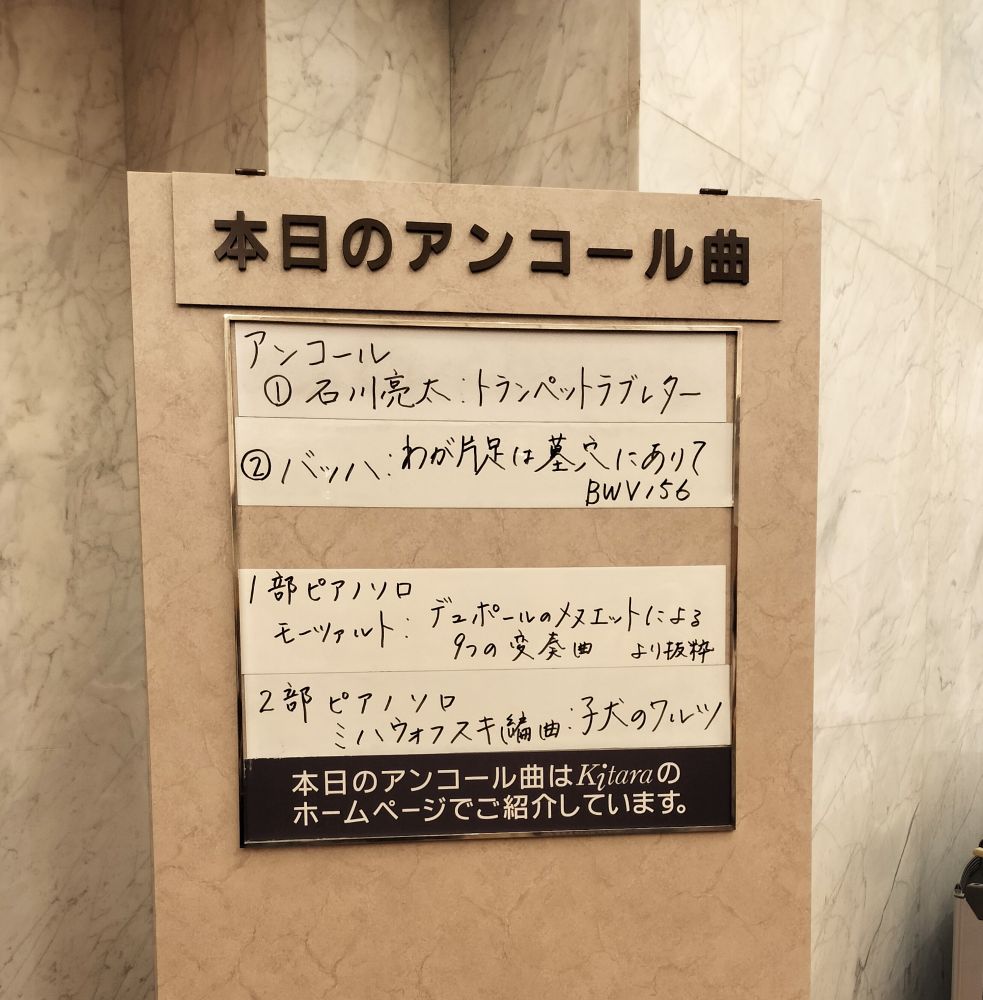 本日のアンコール曲
アンコール
① 石川亮太:トランペットラブレター
② バッハ:わが片足は墓穴にありて
BWV156
1部ピアノソロ
モーツァルト:デュポールのメヌエットによる
9つの変奏曲 より抜粋
2部 ピアノソロ
ミハウォフスキ編曲:子犬のワルツ
本日のアンコール曲はKitaraの
ホームページでご紹介しています。